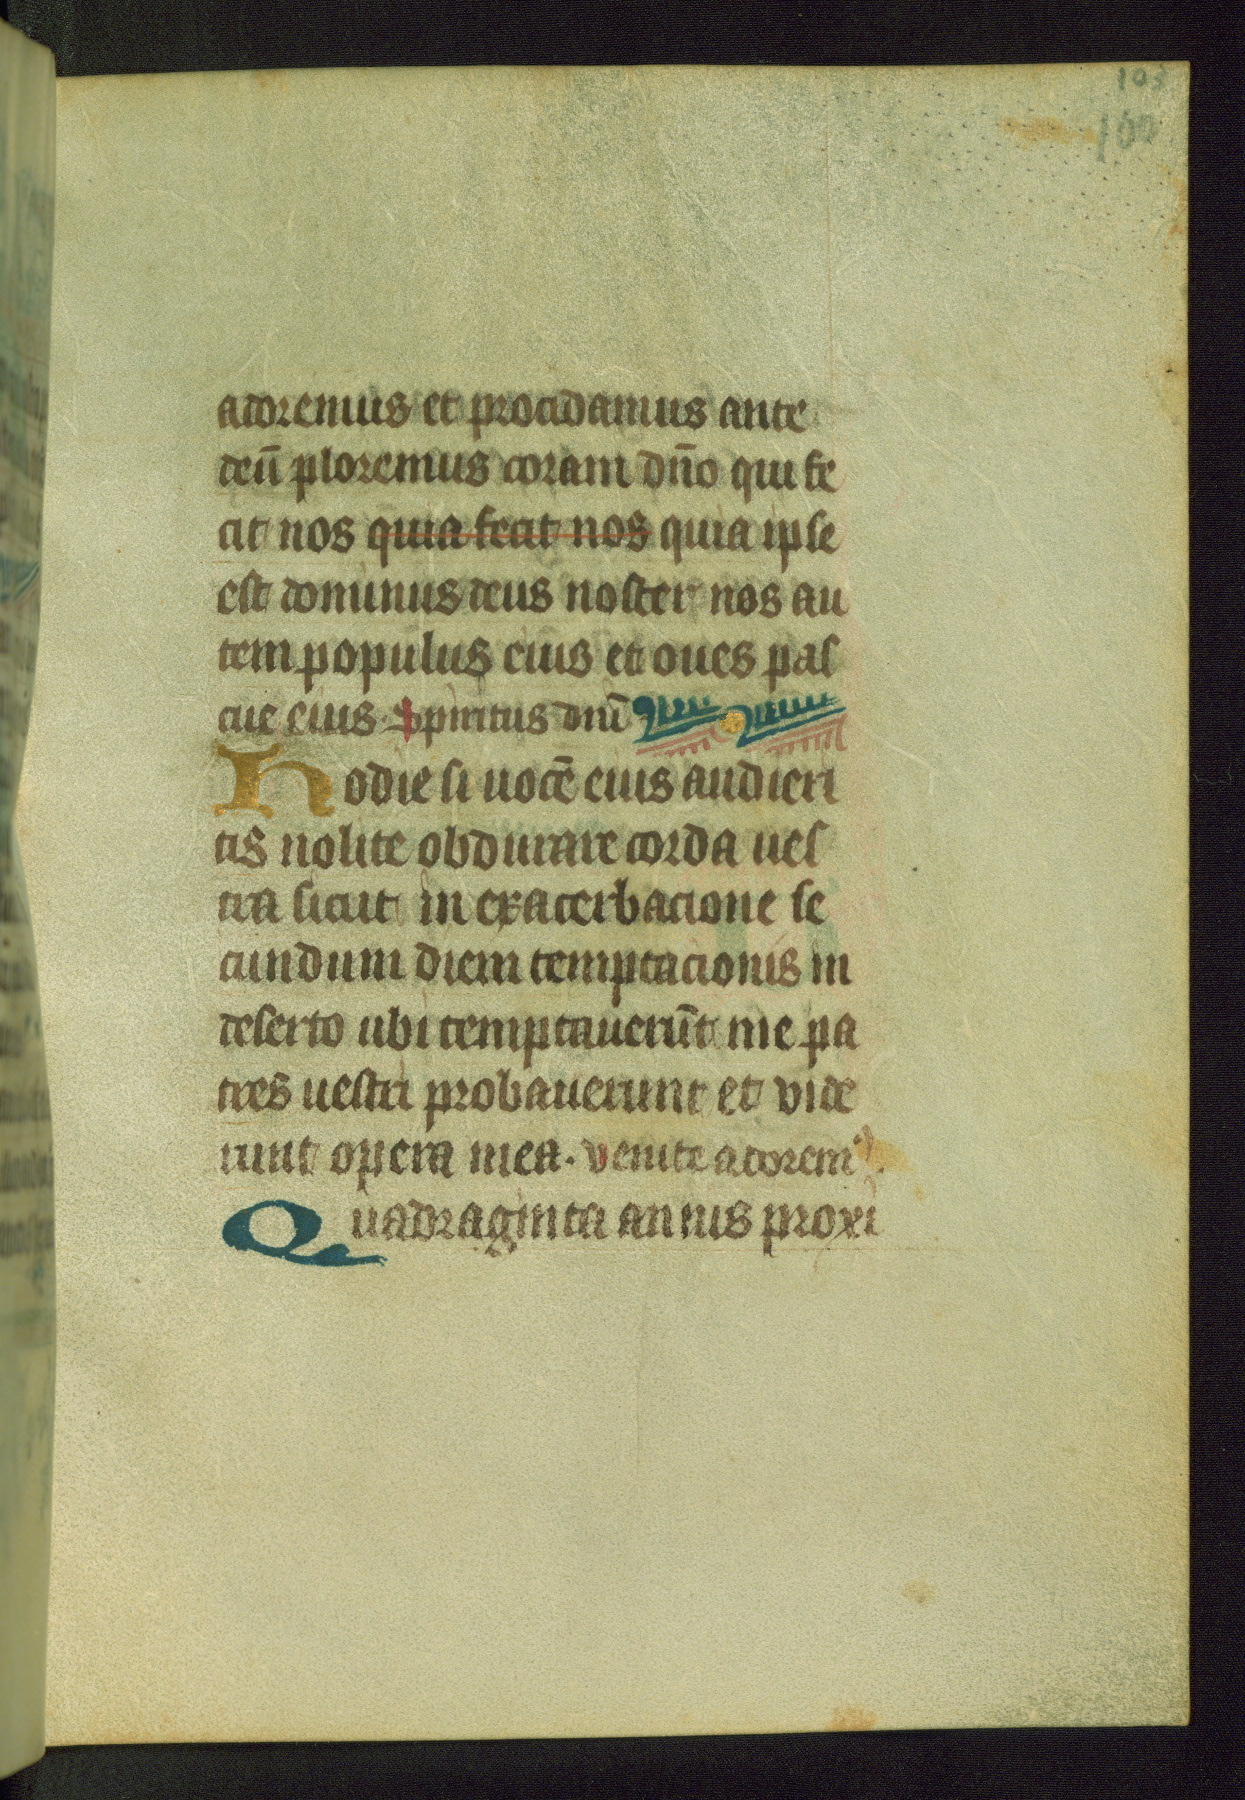 103
100
adoremus et procidamus ante
deū ploremus coram dn̄o qui fe
cit nos quia fecit nos quia ipse
est dominus deus noster nos au
tem populus eius et oues pas
cue eius. Spiritus dnī
Hodie si uocē eius audieri
tis nolite obdurare corda ues
tra sicut in exacerbacione se
cundum diem temptacionis in
deserto ubi temptauerūt me pa
tres uestri probauerunt et vide
runt opera mea. Venite adorem⁹.
Quadraginta annis proxi